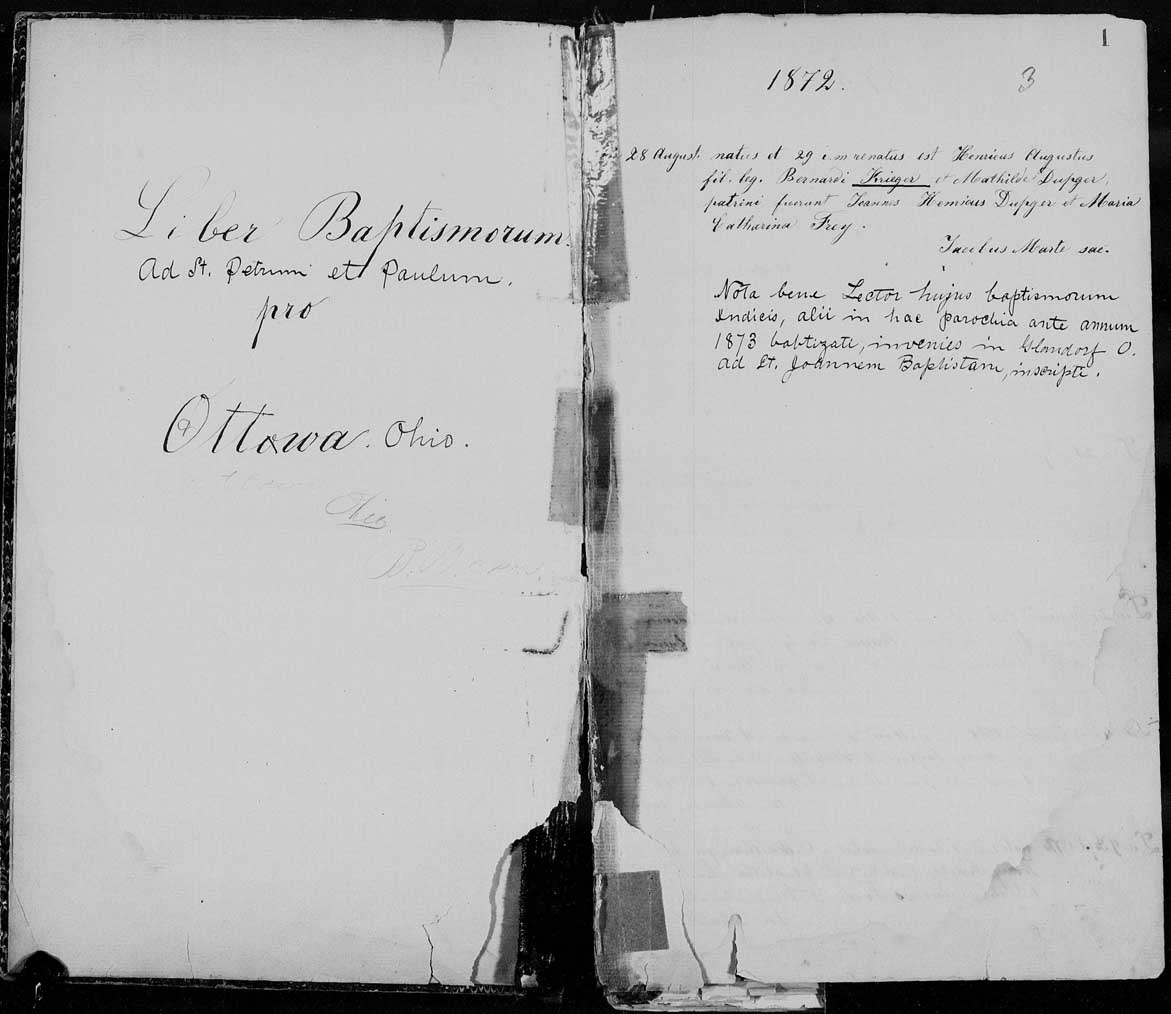 Liber Baptismorum
Ad St. Petrum et Paulum.
pro
Ottowa. Ohio.
Ohio.
1
1872.
3
28 August. natus et 29 i.m renatus est Henricus Augustus
fil. leg. Bernardi Krieger et Mathilde Dupger,
patrini fuerunt Joannes Henricus Dupger et Maria
Catharina Frey.
Jacobus Marte sac.
Nota bene Lector hujus baptismorum
Indicis, alii in hac parochia ante annum
1873 baptizati, invenies in Glandorf O.
ad St. Joannem Baptistam, inscripti.